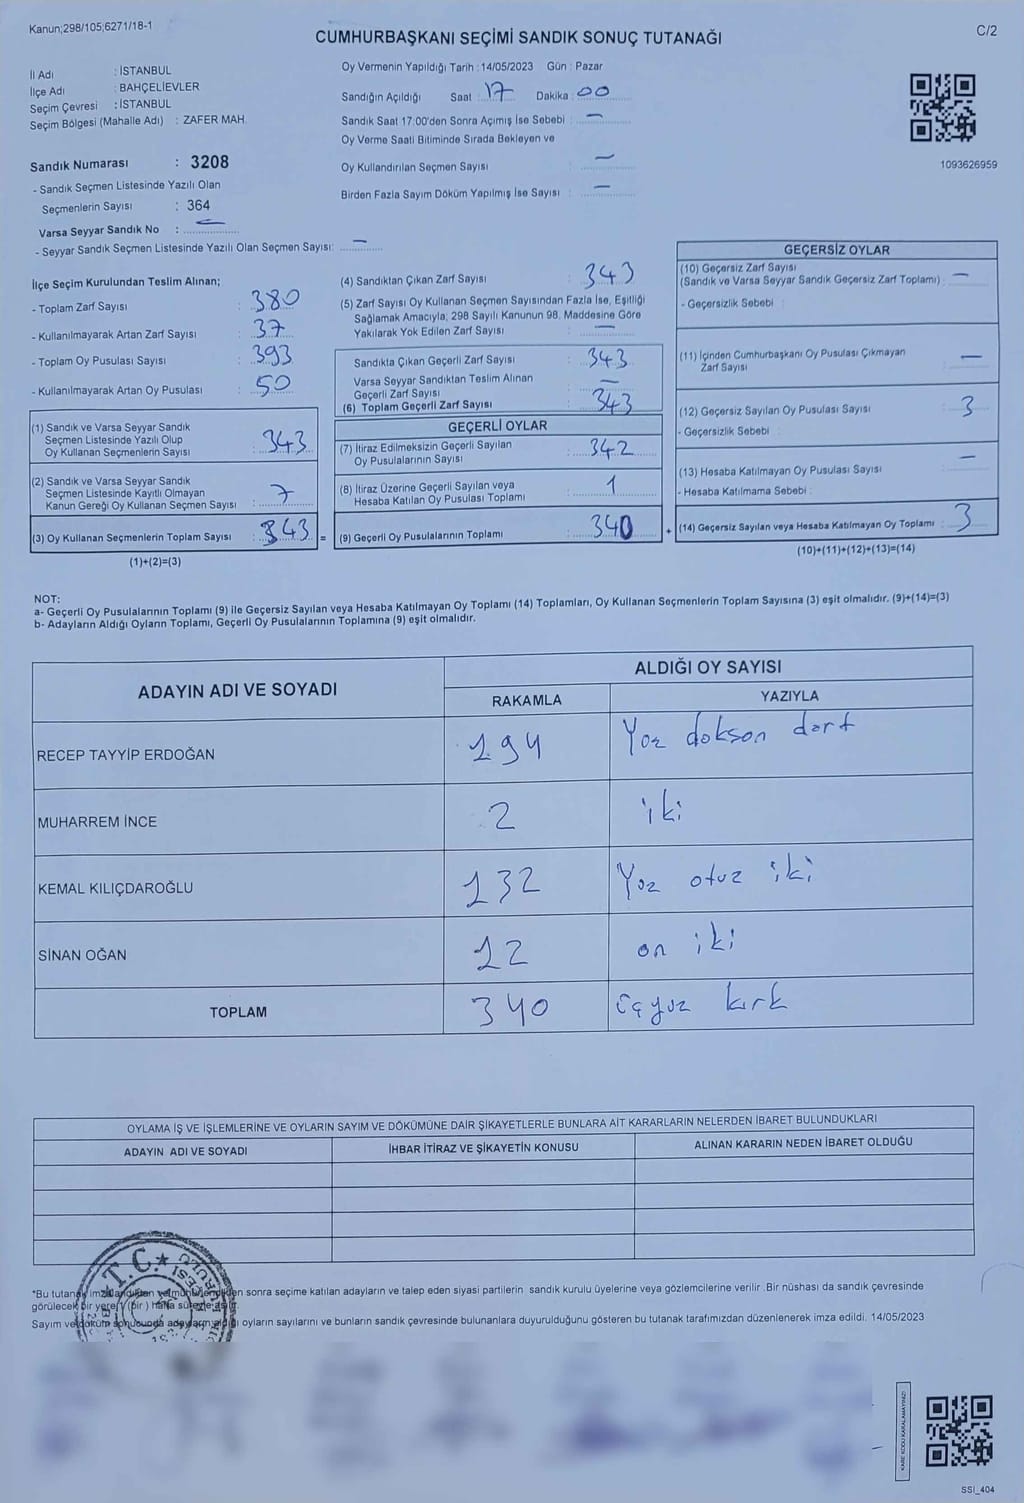 Kanun;298/105;6271/18-1
C/2
CUMHURBAŞKANI SEÇİMİ SANDIK SONUÇ TUTANAĞI
İl Adı : İSTANBUL
İlçe Adı : BAHÇELİEVLER
Seçim Çevresi : İSTANBUL
Seçim Bölgesi (Mahalle Adı) : ZAFER MAH.
Sandık Numarası : 3208
- Sandık Seçmen Listesinde Yazılı Olan
Seçmenlerin Sayısı : 364
Varsa Seyyar Sandık No : —
- Seyyar Sandık Seçmen Listesinde Yazılı Olan Seçmen Sayısı: —
Oy Vermenin Yapıldığı Tarih : 14/05/2023 Gün : Pazar
Sandığın Açıldığı Saat : 17 Dakika : 00
Sandık Saat 17:00'den Sonra Açımış İse Sebebi : —
Oy Verme Saati Bitiminde Sırada Bekleyen ve
Oy Kullandırılan Seçmen Sayısı : —
Birden Fazla Sayım Döküm Yapılmış İse Sayısı : —
1093626959
İlçe Seçim Kurulundan Teslim Alınan;
- Toplam Zarf Sayısı : 380
- Kullanılmayarak Artan Zarf Sayısı : 37
- Toplam Oy Pusulası Sayısı : 393
- Kullanılmayarak Artan Oy Pusulası : 50
(1) Sandık ve Varsa Seyyar Sandık
Seçmen Listesinde Yazılı Olup
Oy Kullanan Seçmenlerin Sayısı : 343
(2) Sandık ve Varsa Seyyar Sandık
Seçmen Listesinde Kayıtlı Olmayan
Kanun Gereği Oy Kullanan Seçmen Sayısı : 7
(3) Oy Kullanan Seçmenlerin Toplam Sayısı : 343 =
(1)+(2)=(3)
(4) Sandıktan Çıkan Zarf Sayısı : 343
(5) Zarf Sayısı Oy Kullanan Seçmen Sayısından Fazla İse, Eşitliği
Sağlamak Amacıyla; 298 Sayılı Kanunun 98. Maddesine Göre
Yakılarak Yok Edilen Zarf Sayısı : —
Sandıkta Çıkan Geçerli Zarf Sayısı : 343
Varsa Seyyar Sandıktan Teslim Alınan
Geçerli Zarf Sayısı : —
(6) Toplam Geçerli Zarf Sayısı : 343
GEÇERLİ OYLAR
(7) İtiraz Edilmeksizin Geçerli Sayılan
Oy Pusulalarının Sayısı : 342
(8) İtiraz Üzerine Geçerli Sayılan veya
Hesaba Katılan Oy Pusulası Toplamı : 1
(9) Geçerli Oy Pusulalarının Toplamı : 340 +
GEÇERSİZ OYLAR
(10) Geçersiz Zarf Sayısı
(Sandık ve Varsa Seyyar Sandık Geçersiz Zarf Toplamı) : —
- Geçersizlik Sebebi :
(11) İçinden Cumhurbaşkanı Oy Pusulası Çıkmayan
Zarf Sayısı : —
(12) Geçersiz Sayılan Oy Pusulası Sayısı : 3
- Geçersizlik Sebebi :
(13) Hesaba Katılmayan Oy Pusulası Sayısı : —
- Hesaba Katılmama Sebebi :
(14) Geçersiz Sayılan veya Hesaba Katılmayan Oy Toplamı : 3
(10)+(11)+(12)+(13)=(14)
NOT:
a- Geçerli Oy Pusulalarının Toplamı (9) ile Geçersiz Sayılan veya Hesaba Katılmayan Oy Toplamı (14) Toplamları, Oy Kullanan Seçmenlerin Toplam Sayısına (3) eşit olmalıdır. (9)+(14)=(3)
b- Adayların Aldığı Oyların Toplamı, Geçerli Oy Pusulalarının Toplamına (9) eşit olmalıdır.
ADAYIN ADI VE SOYADI
ALDIĞI OY SAYISI
RAKAMLA YAZIYLA
RECEP TAYYİP ERDOĞAN 194 Yüz doksan dört
MUHARREM İNCE 2 iki
KEMAL KILIÇDAROĞLU 132 Yüz otuz iki
SİNAN OĞAN 12 on iki
TOPLAM 340 Üçyüz kırk
OYLAMA İŞ VE İŞLEMLERİNE VE OYLARIN SAYIM VE DÖKÜMÜNE DAİR ŞİKAYETLERLE BUNLARA AİT KARARLARIN NELERDEN İBARET BULUNDUKLARI
ADAYIN ADI VE SOYADI İHBAR İTİRAZ VE ŞİKAYETİN KONUSU ALINAN KARARIN NEDEN İBARET OLDUĞU
T.C.
*Bu tutanak imzalandıktan ve mühürlendikten sonra seçime katılan adayların ve talep eden siyasi partilerin sandık kurulu üyelerine veya gözlemcilerine verilir. Bir nüshası da sandık çevresinde
görülecek bir yere 1 (bir) hafta süreyle asılır.
Sayım ve döküm sonucunda adayların aldığı oyların sayılarını ve bunların sandık çevresinde bulunanlara duyurulduğunu gösteren bu tutanak tarafımızdan düzenlenerek imza edildi. 14/05/2023
KARE KODU KARALAMAYINIZ!
SSI_404